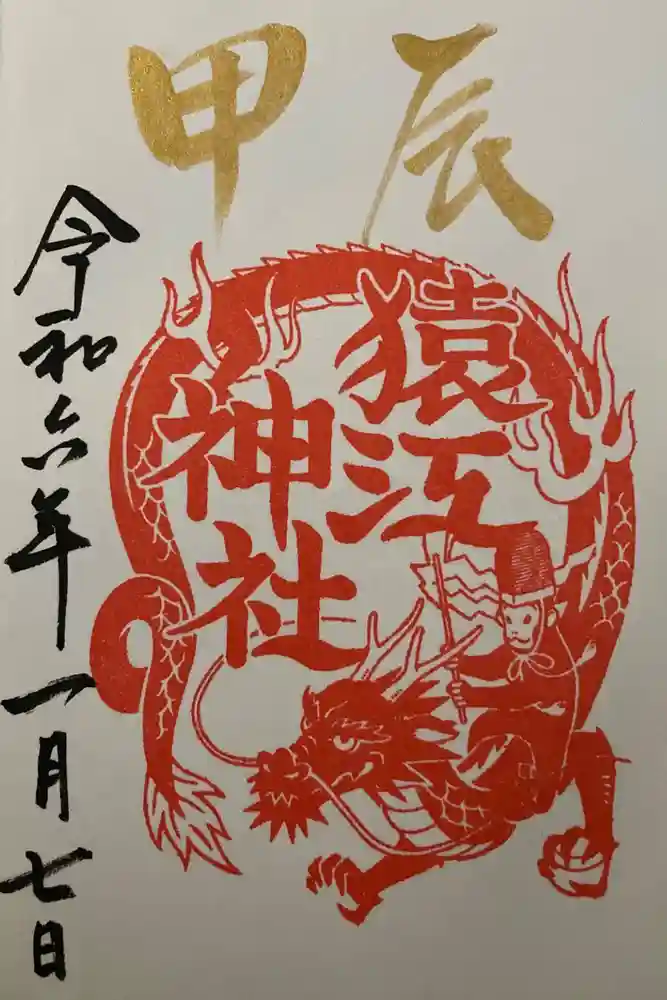 甲辰
猿江
神社
令和六年一月七日